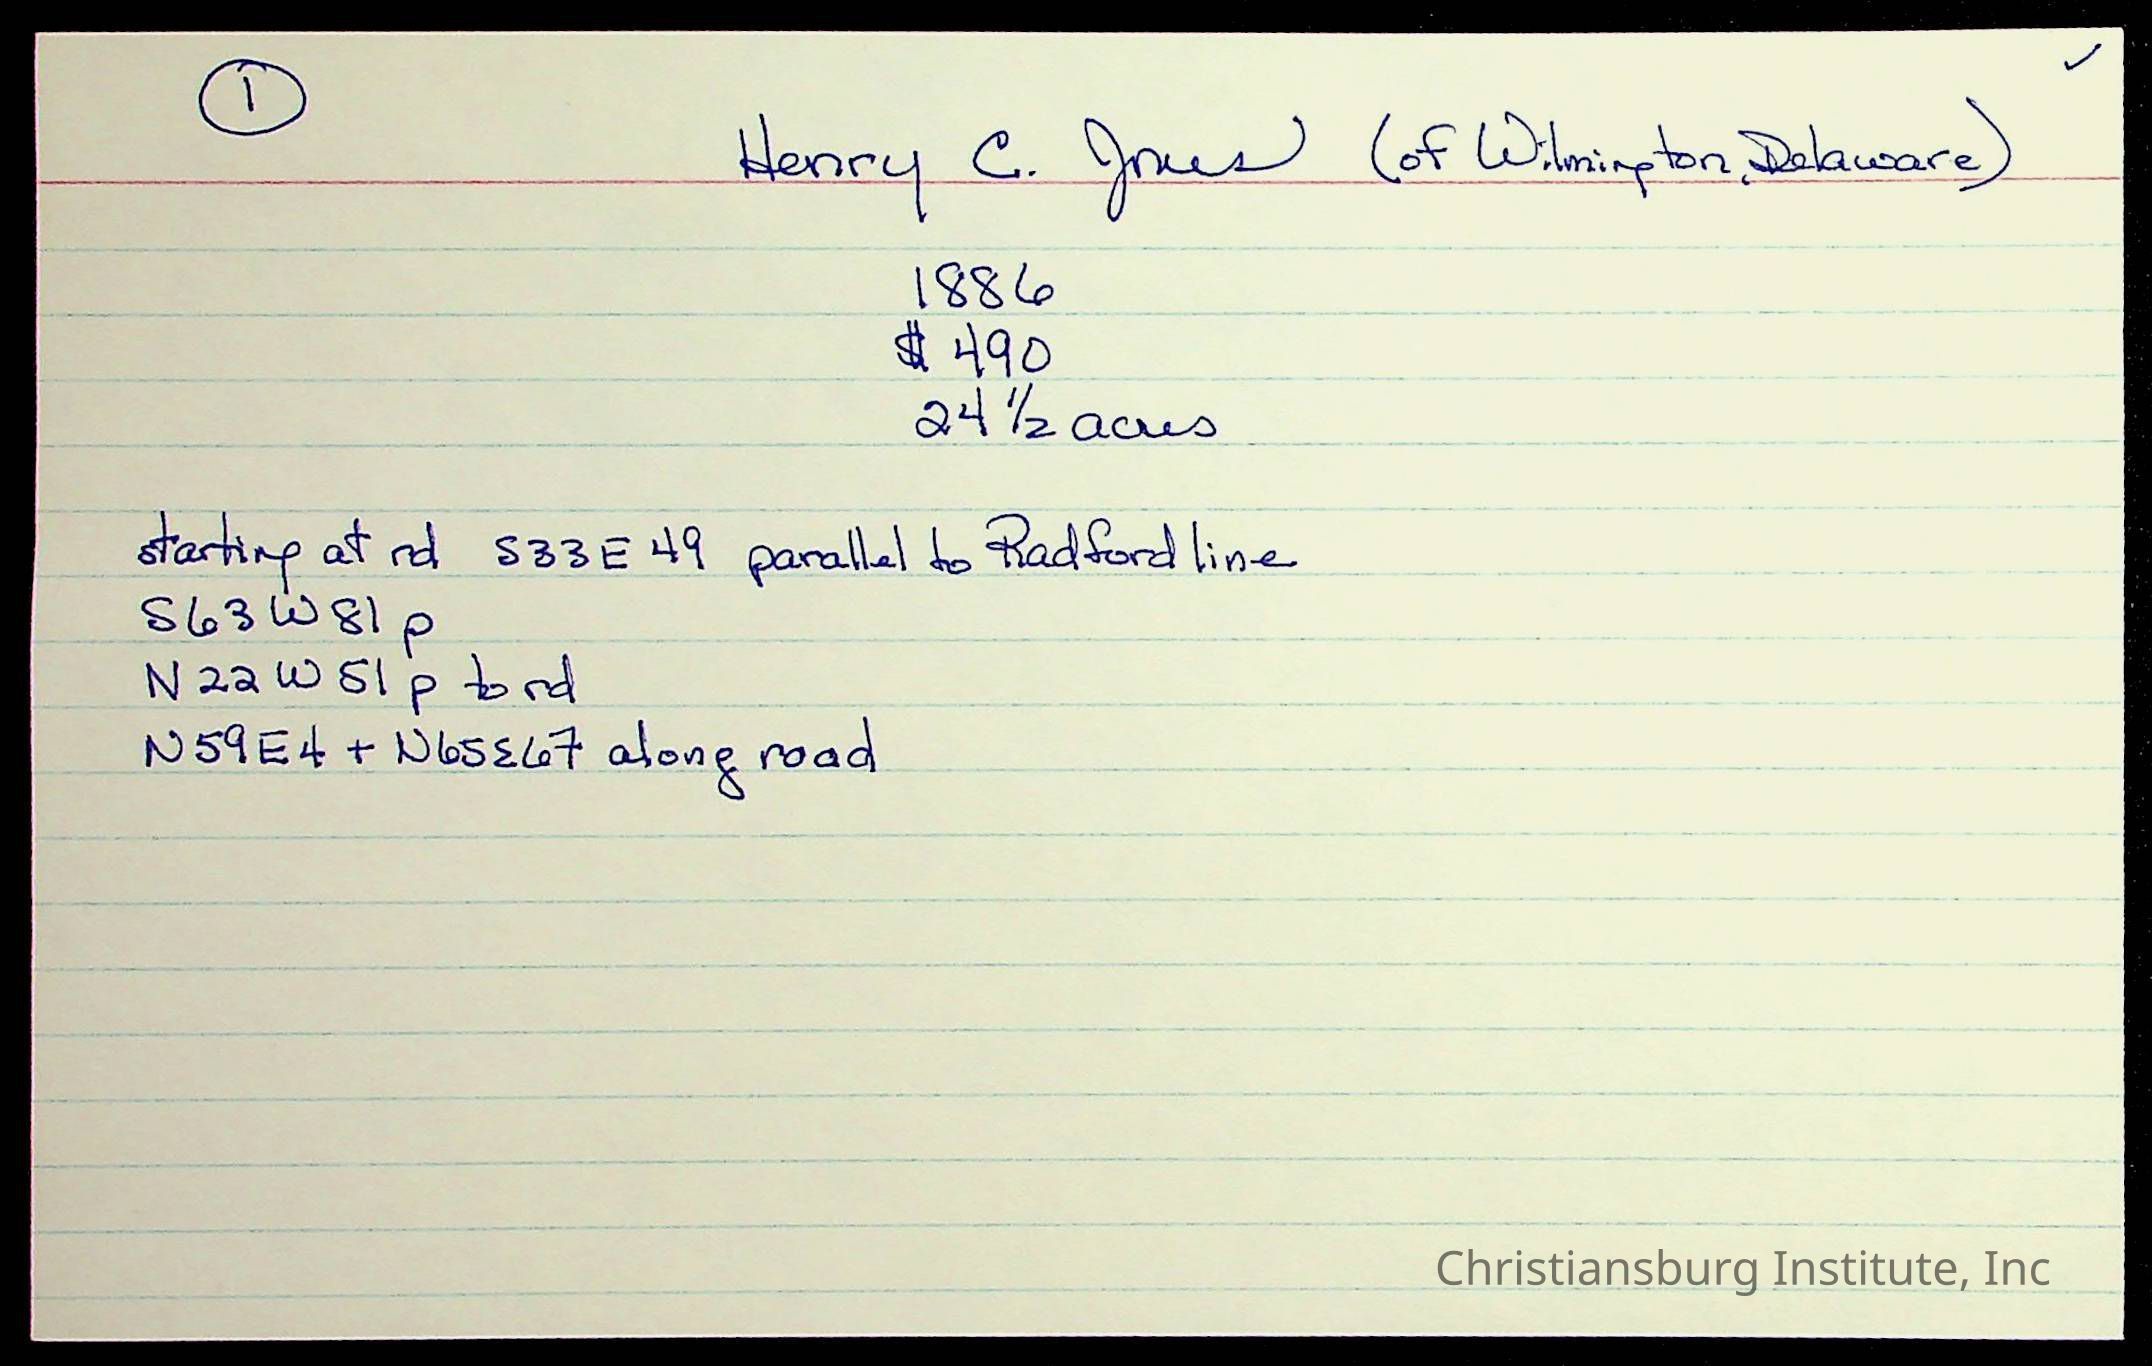 1 ✓
Henry C. Jones (of Wilmington, Delaware)
1886
$ 490
24 1/2 acres
starting at rd S33E 49 parallel to Radford line
S63W81p
N22W51p to rd
N59E4 + N65E67 along road
Christiansburg Institute, Inc